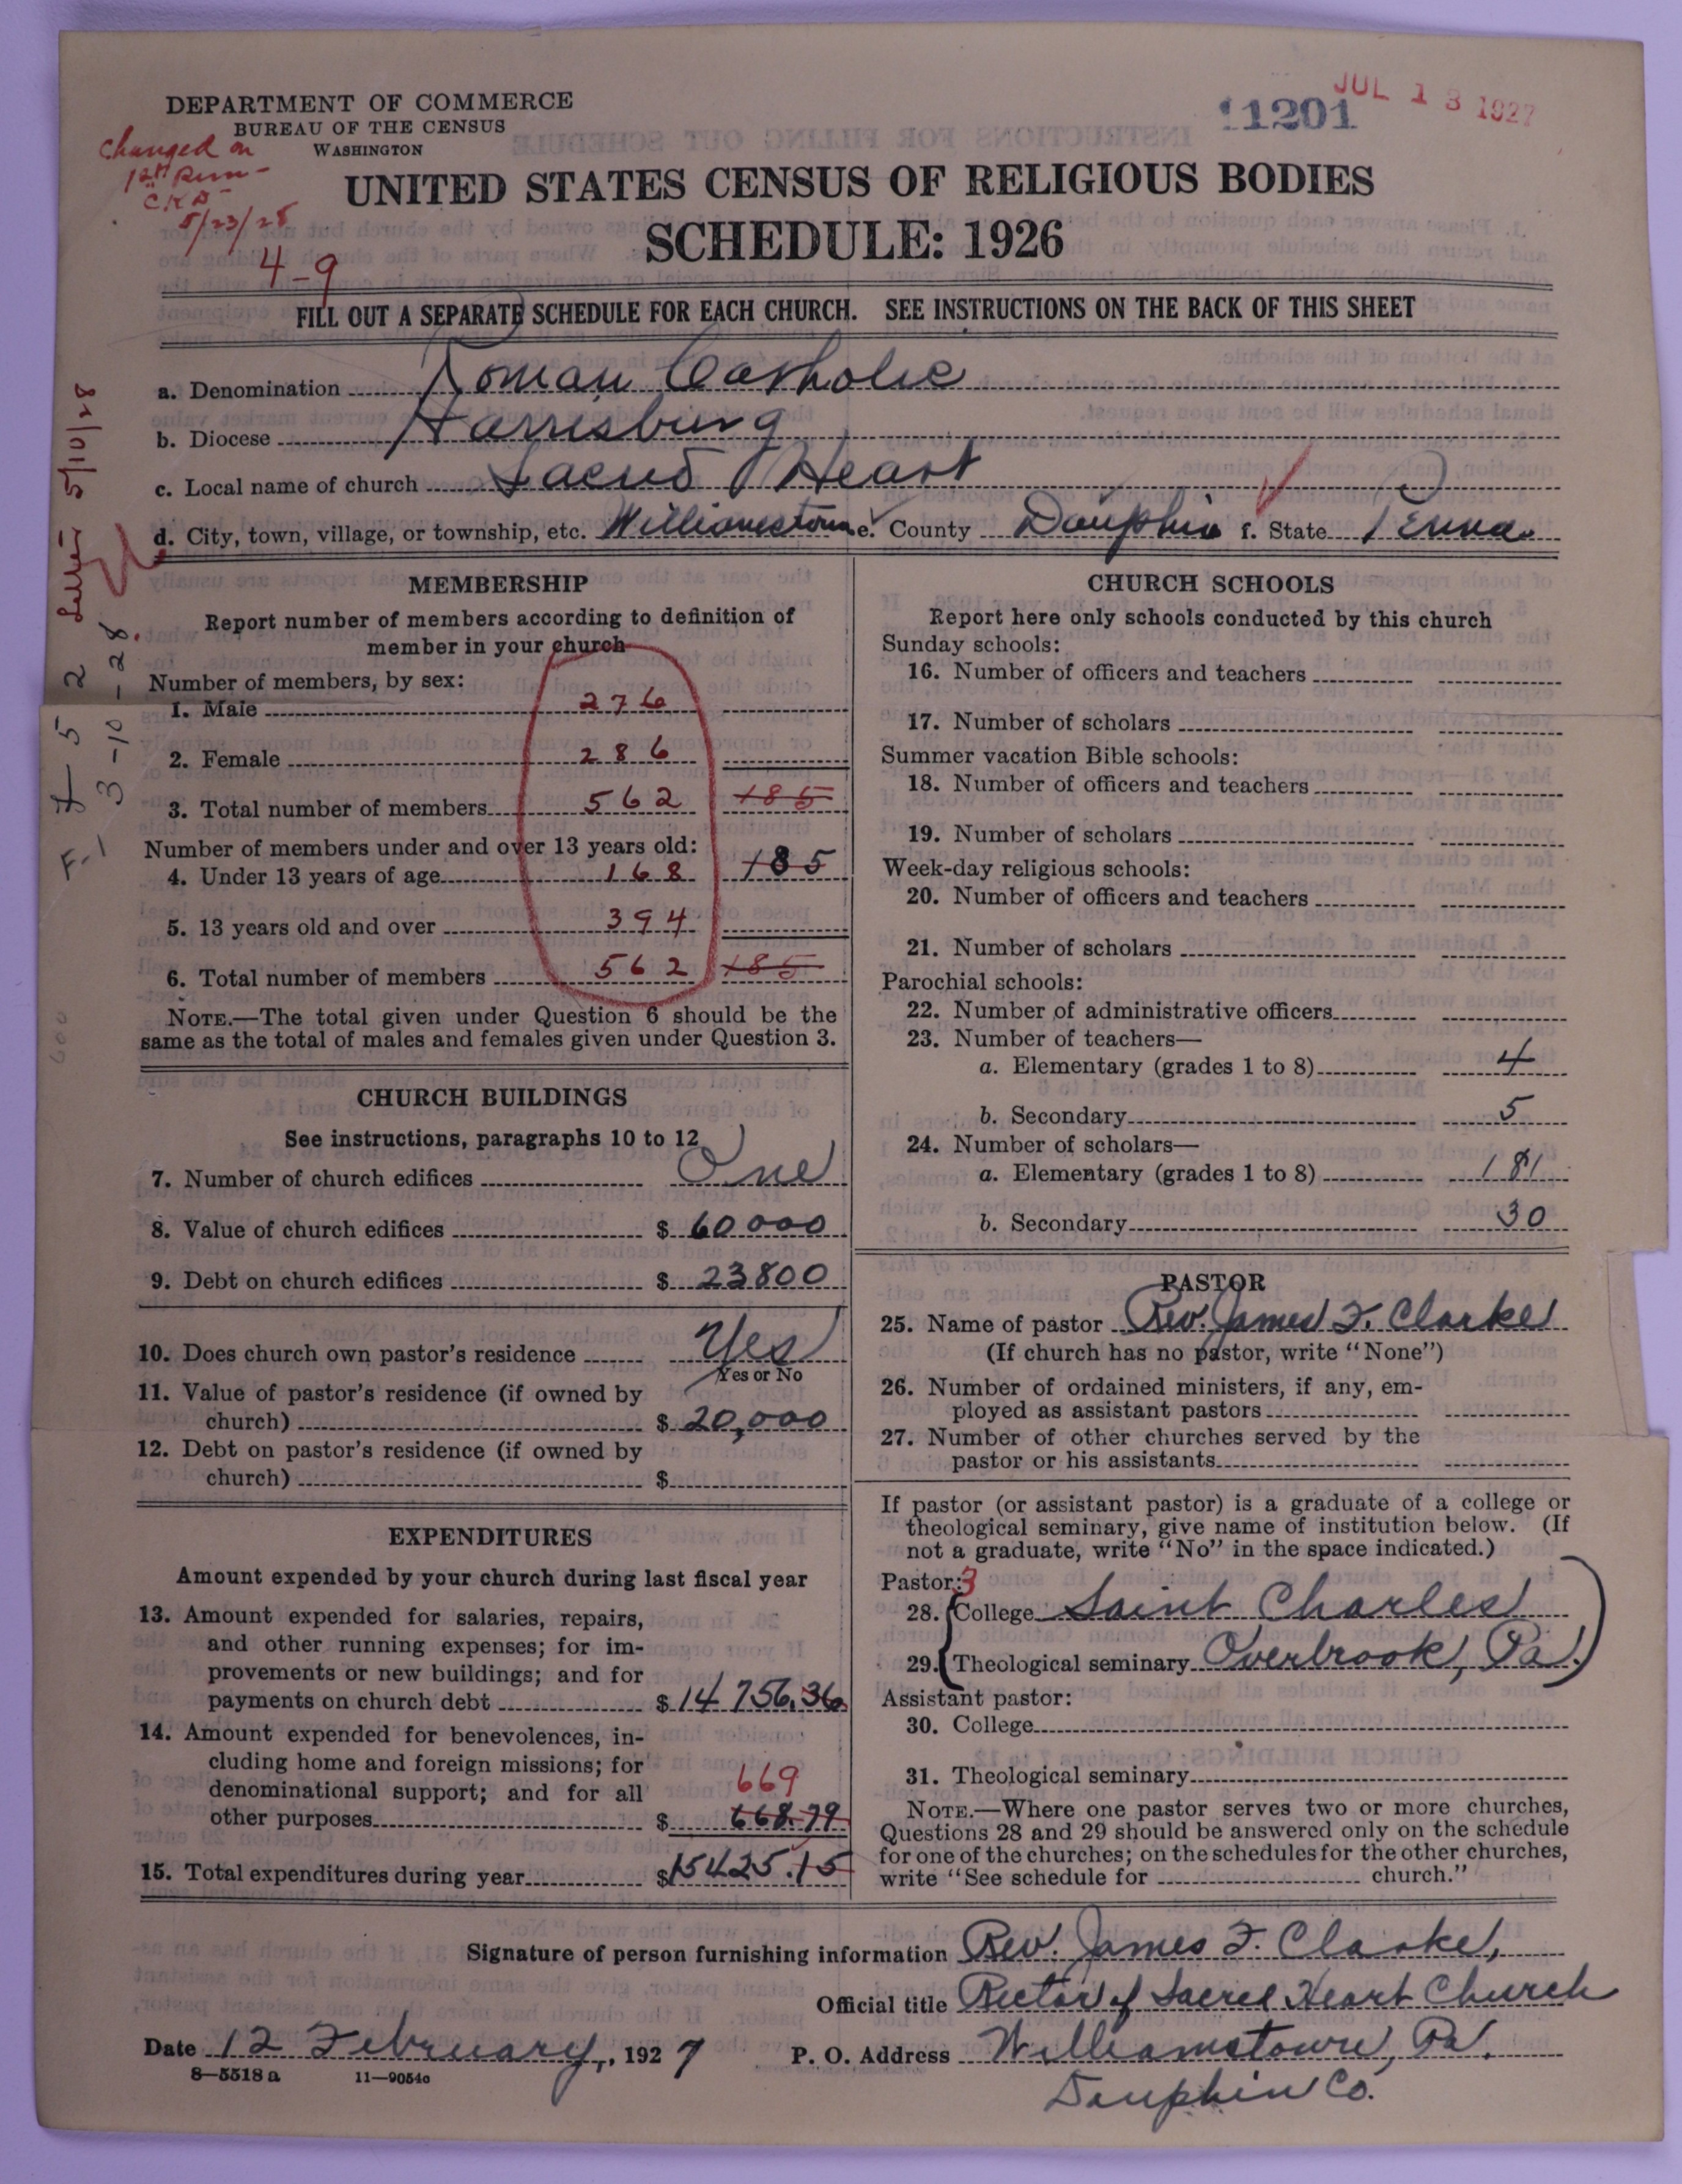 DEPARTMENT OF COMMERCE
BUREAU OF THE CENSUS
WASHINGTON
11201
JUL 13 1927
Changed on
1st Run -
C.K.D -
5/23/28
4-9
UNITED STATES CENSUS OF RELIGIOUS BODIES
SCHEDULE: 1926
FILL OUT A SEPARATE SCHEDULE FOR EACH CHURCH. SEE INSTRUCTIONS ON THE BACK OF THIS SHEET
a. Denomination Roman Catholic
b. Diocese Harrisburg
c. Local name of church Sacred Heart
d. City, town, village, or township, etc. Williamstown e. County Dauphin f. State Penna.
5/10/28
3-10-28.
F-1
600
MEMBERSHIP
Report number of members according to definition of
member in your church
Number of members, by sex:
1. Male 276
2. Female 286
3. Total number of members 562 185
Number of members under and over 13 years old:
4. Under 13 years of age 168 185
5. 13 years old and over 394
6. Total number of members 562 185
NOTE.—The total given under Question 6 should be the
same as the total of males and females given under Question 3.
CHURCH BUILDINGS
See instructions, paragraphs 10 to 12
7. Number of church edifices One
8. Value of church edifices $ 60000
9. Debt on church edifices $ 23800
10. Does church own pastor's residence Yes
Yes or No
11. Value of pastor's residence (if owned by
church) $ 20,000
12. Debt on pastor's residence (if owned by
church) $
EXPENDITURES
Amount expended by your church during last fiscal year
13. Amount expended for salaries, repairs,
and other running expenses; for im-
provements or new buildings; and for
payments on church debt $ 14756.36
14. Amount expended for benevolences, in-
cluding home and foreign missions; for
denominational support; and for all 669
other purposes $ 668.79
15. Total expenditures during year $15425.15
CHURCH SCHOOLS
Report here only schools conducted by this church
Sunday schools:
16. Number of officers and teachers
17. Number of scholars
Summer vacation Bible schools:
18. Number of officers and teachers
19. Number of scholars
Week-day religious schools:
20. Number of officers and teachers
21. Number of scholars
Parochial schools:
22. Number of administrative officers
23. Number of teachers—
a. Elementary (grades 1 to 8) 4
b. Secondary 5
24. Number of scholars—
a. Elementary (grades 1 to 8) 181
b. Secondary 30
PASTOR
25. Name of pastor Rev. James F. Clarke
(If church has no pastor, write "None")
26. Number of ordained ministers, if any, em-
ployed as assistant pastors
27. Number of other churches served by the
pastor or his assistants
If pastor (or assistant pastor) is a graduate of a college or
theological seminary, give name of institution below. (If
not a graduate, write "No" in the space indicated.)
Pastor: 3
28. College Saint Charles
29. Theological seminary Overbrook, Pa.
Assistant pastor:
30. College
31. Theological seminary
NOTE.—Where one pastor serves two or more churches,
Questions 28 and 29 should be answered only on the schedule
for one of the churches; on the schedules for the other churches,
write "See schedule for church."
Signature of person furnishing information Rev. James F. Clarke,
Official title Rector of Sacred Heart Church
Date 12 February, 1927 P. O. Address Williamstown, Pa.
Dauphin Co.
8—5518a 11—9054c